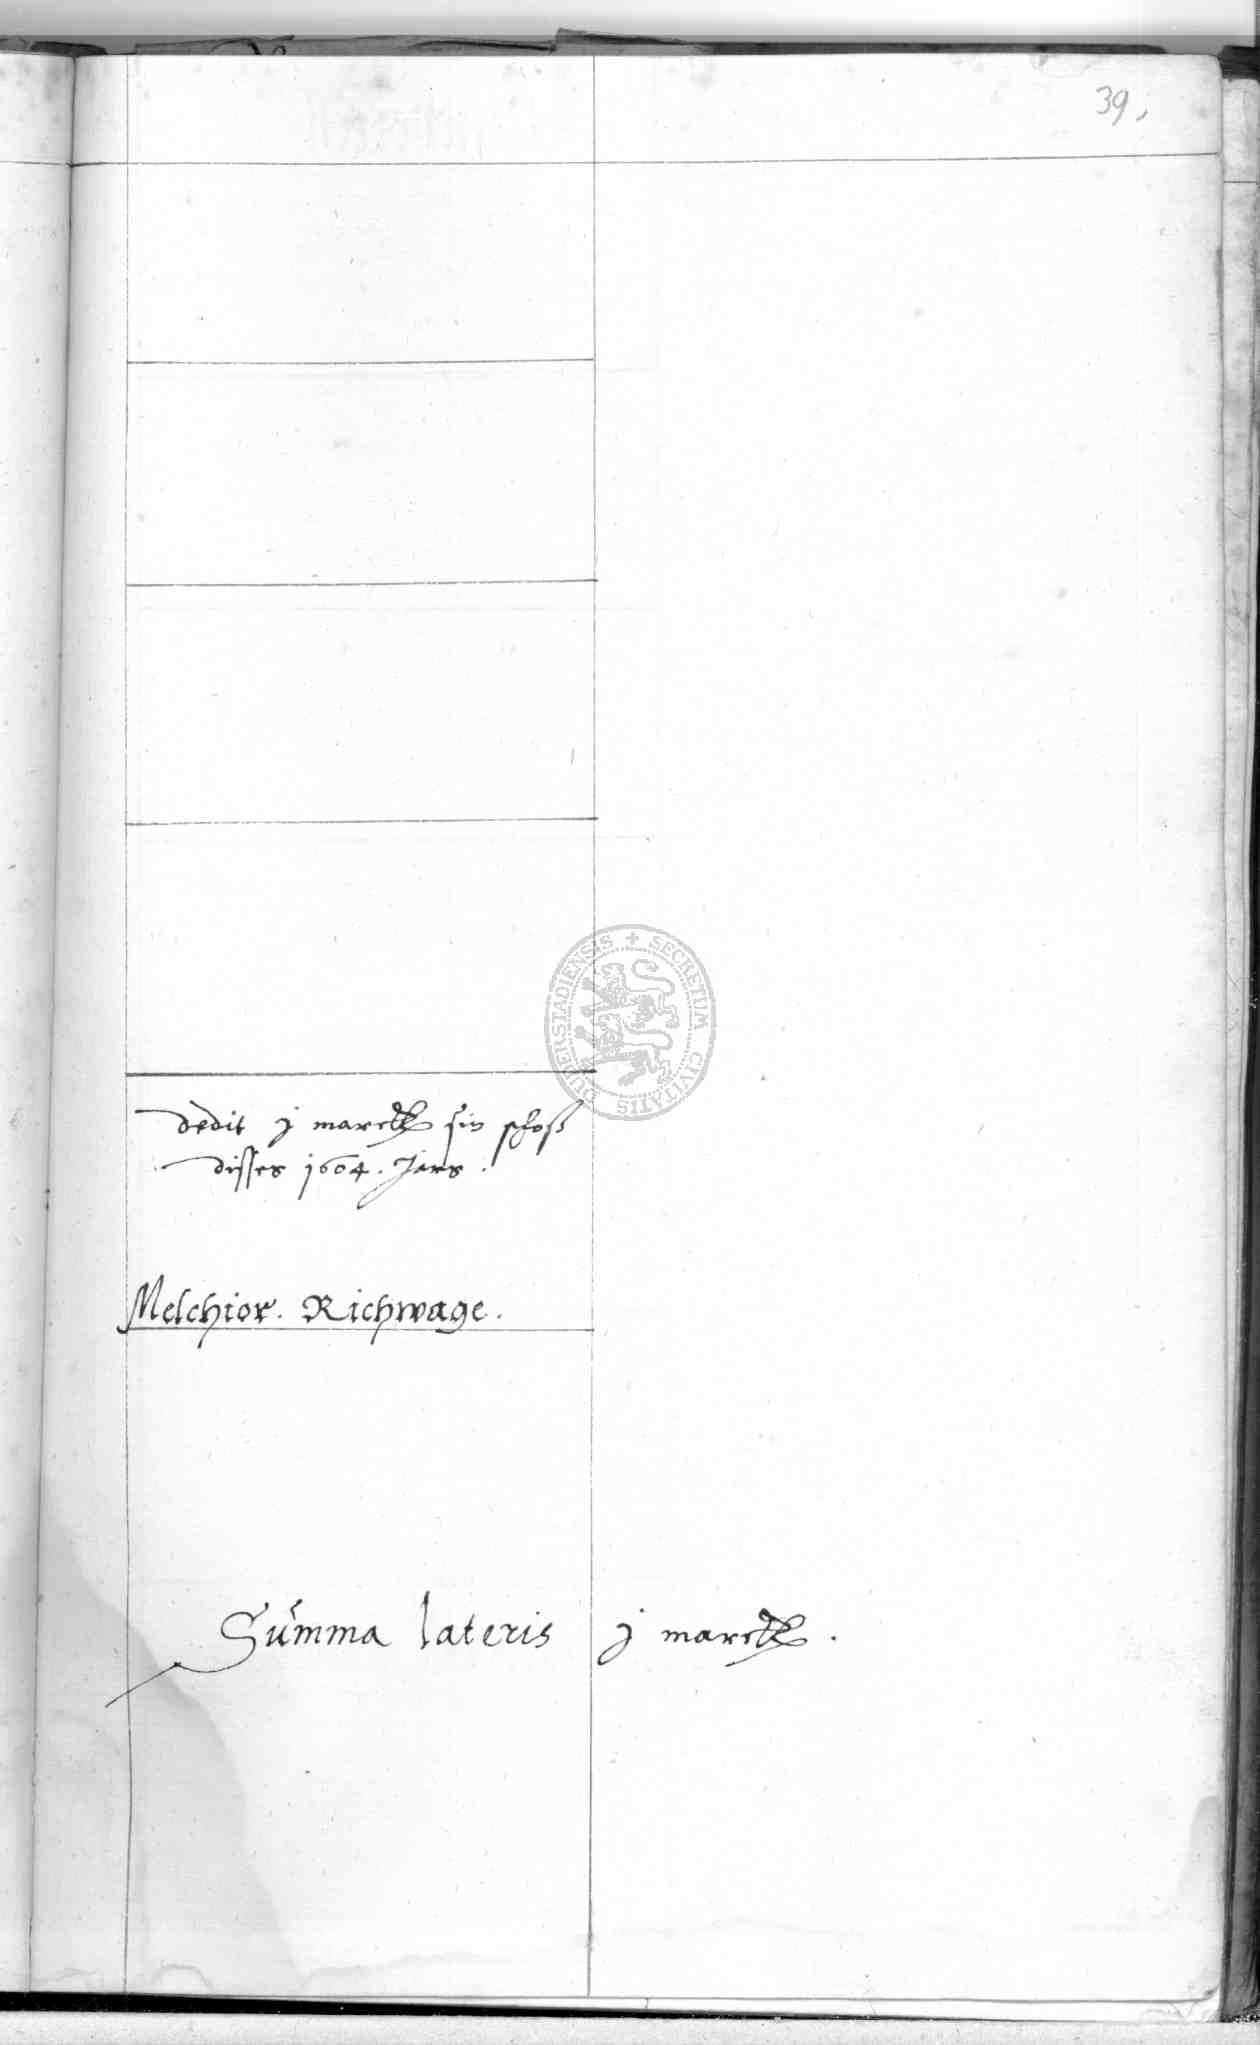 39.
dedit j marck sin schoß
disses 1604. Jars.
Melchior. Richwage.
Summa lateris j marck.
SECRETUM CIVITATIS DUDERSTADIENSIS